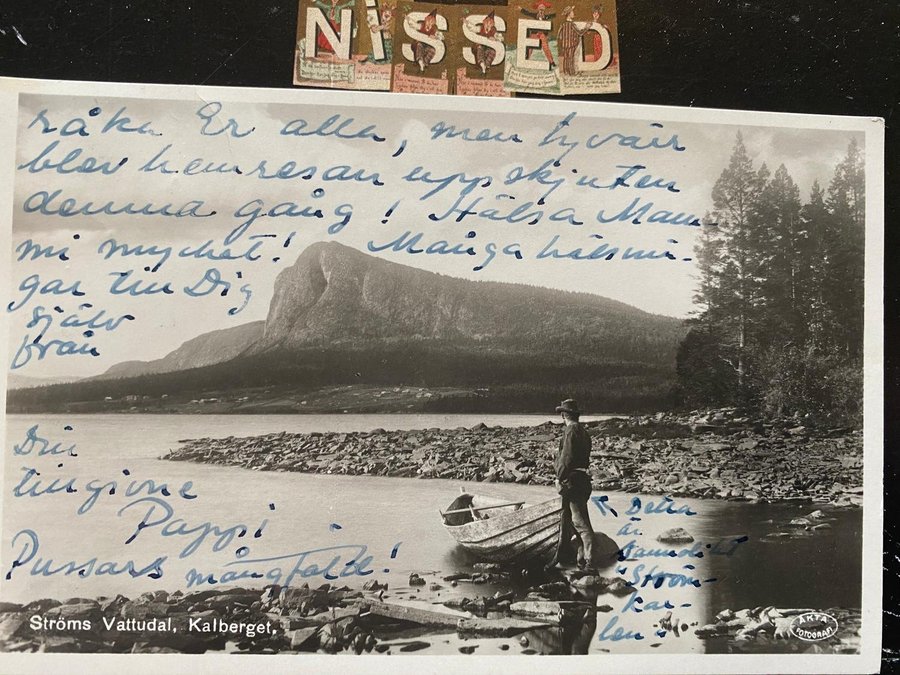 NISSED
råka Er alla, men tyvärr
blev hemresan uppskjuten
denna gång! Hälsa Mam-
mi mycket! Många hälsnin-
gar till Dig
själv
från
Din
tillgivne
Pappi.
Pussars mångfald!
↖ Detta
är
sannolikt
"Ström-
kar-
len".
Ströms Vattudal, Kalberget.
ÄKTA
FOTOGRAFI